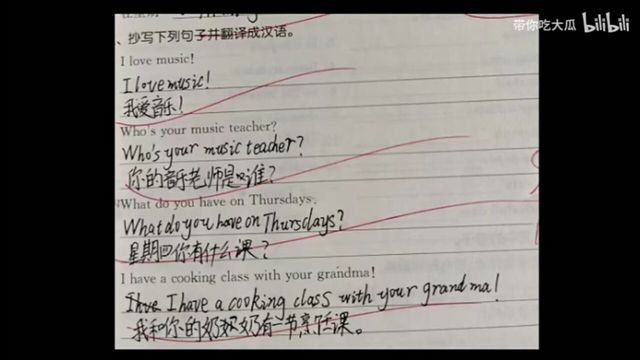 带你吃大瓜 bilibili
、抄写下列句子并翻译成汉语。
I love music!
I love music!
我爱音乐!
Who's your music teacher?
Who's your music teacher?
你的音乐老师是谁?
What do you have on Thursdays.
What do you have on Thursdays?
星期四你有什么课?
I have a cooking class with your grandma!
I have a cooking class with your grandma!
我和你的奶奶有一节烹饪课。